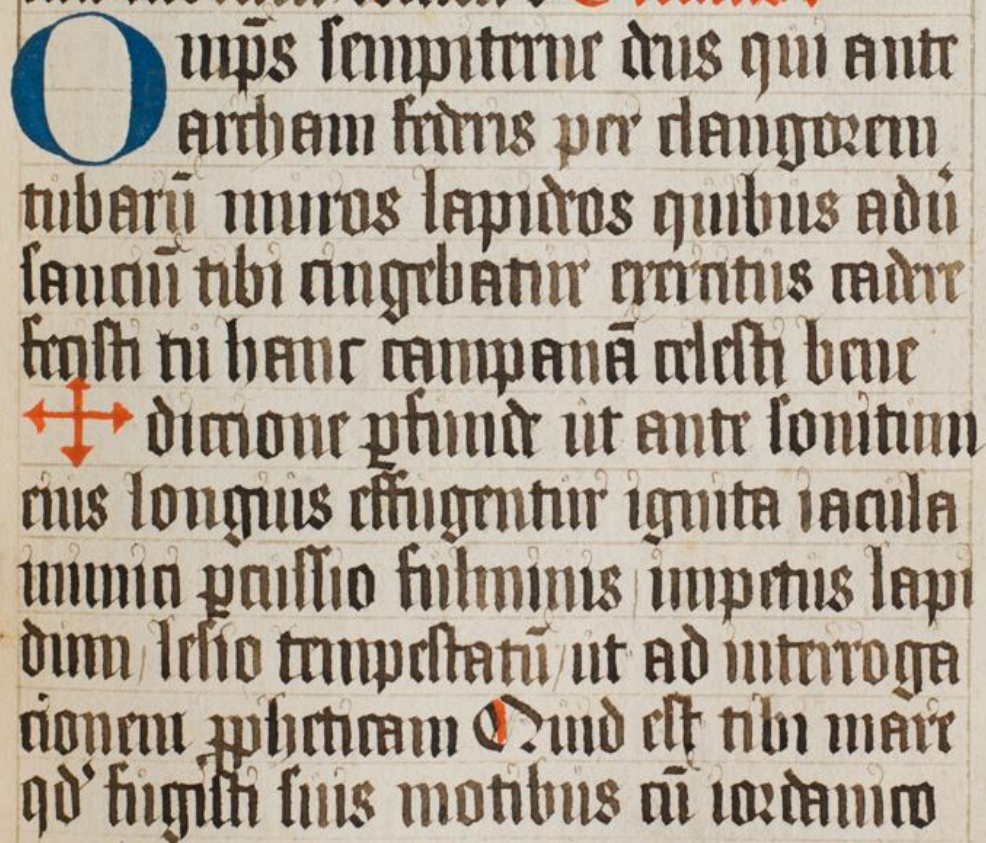 Omp̄s sempiterne deus qui ante
archam federis per clangorem
tubarū muros lapideos quibus adū
sanciū tibi cingebatur exercitus cadere
fecisti tu hanc campanā celesti bene
diccione ꝑfunde ut ante sonitum
eius longius effugentur ignita iacula
inimici ꝑcussio fulminis / impetus lapi
dum / lesio tempestatū / ut ad interroga
cionem ꝓpheticam Quid est tibi mare
qd' fugisti suis motibus cū iordanico